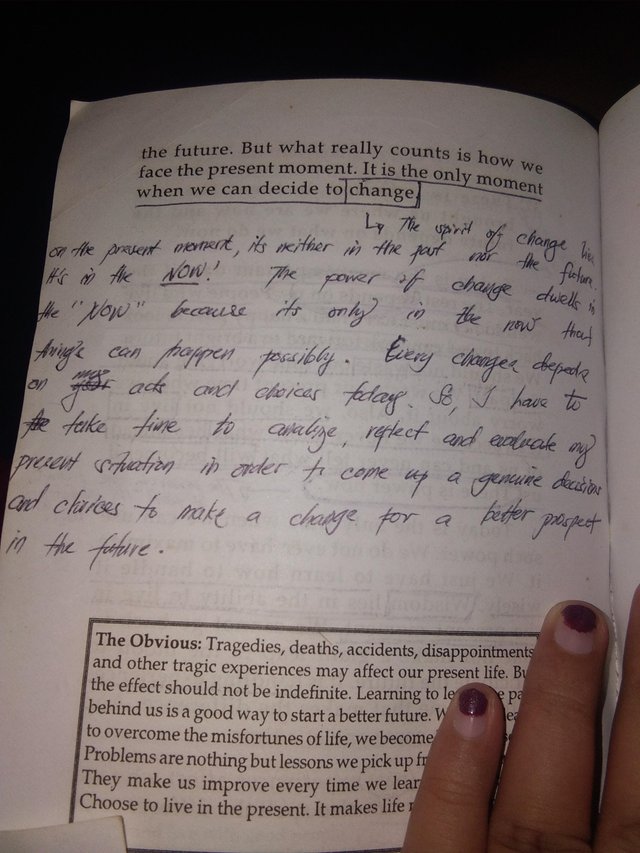 the future. But what really counts is how we
face the present moment. It is the only moment
when we can decide to change.
↳ The spirit of change lies
on the present moment, its neither in the past nor the future.
It's in the NOW! The power of change dwells in
the "NOW" because its only in the now that
things can happen possibly. Every changes depends
on my acts and choices today. So, I have to
take time to analize, reflect and evaluate my
present situation in order to come up a genuine decisions
and choices to make a change for a better prospect
in the future.
The Obvious: Tragedies, deaths, accidents, disappointments
and other tragic experiences may affect our present life. Bu
the effect should not be indefinite. Learning to le pa
behind us is a good way to start a better future. W
to overcome the misfortunes of life, we become
Problems are nothing but lessons we pick up fr
They make us improve every time we lear
Choose to live in the present. It makes life